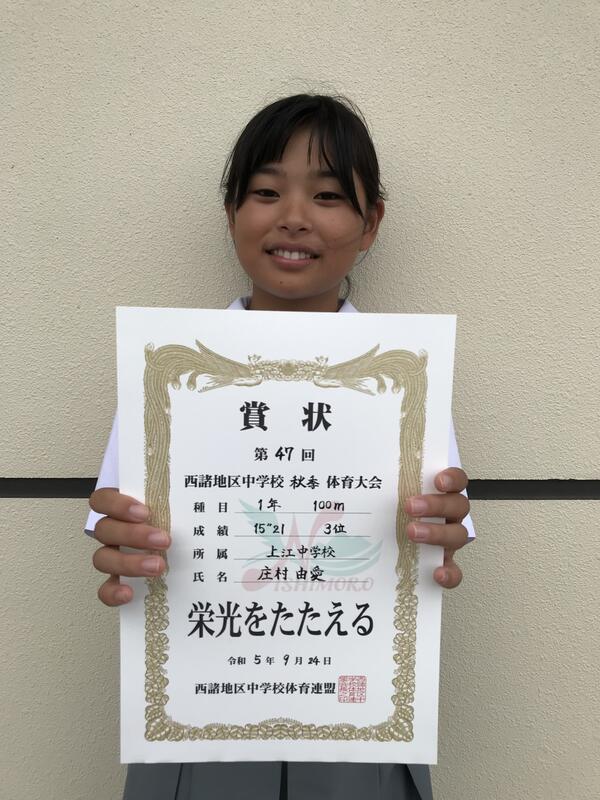 賞状
第47回
西諸地区中学校 秋季 体育大会
種目 1年 100m
成績 15"21 3位
所属 上江中学校
氏名 庄村 由愛
NISHIMORO
栄光をたたえる
令和5年9月24日
西諸地区中学校体育連盟